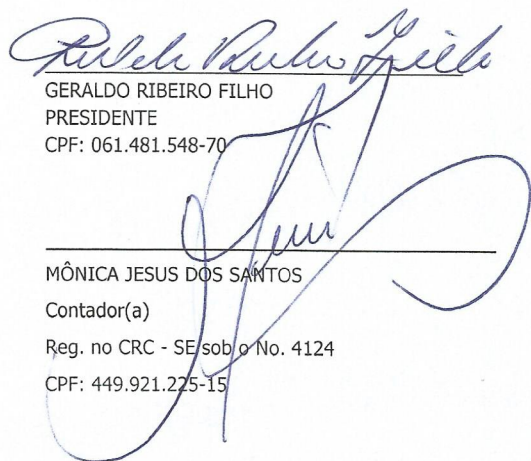 GERALDO RIBEIRO FILHO
PRESIDENTE
CPF: 061.481.548-70
MÔNICA JESUS DOS SANTOS
Contador(a)
Reg. no CRC - SE sob o No. 4124
CPF: 449.921.225-15